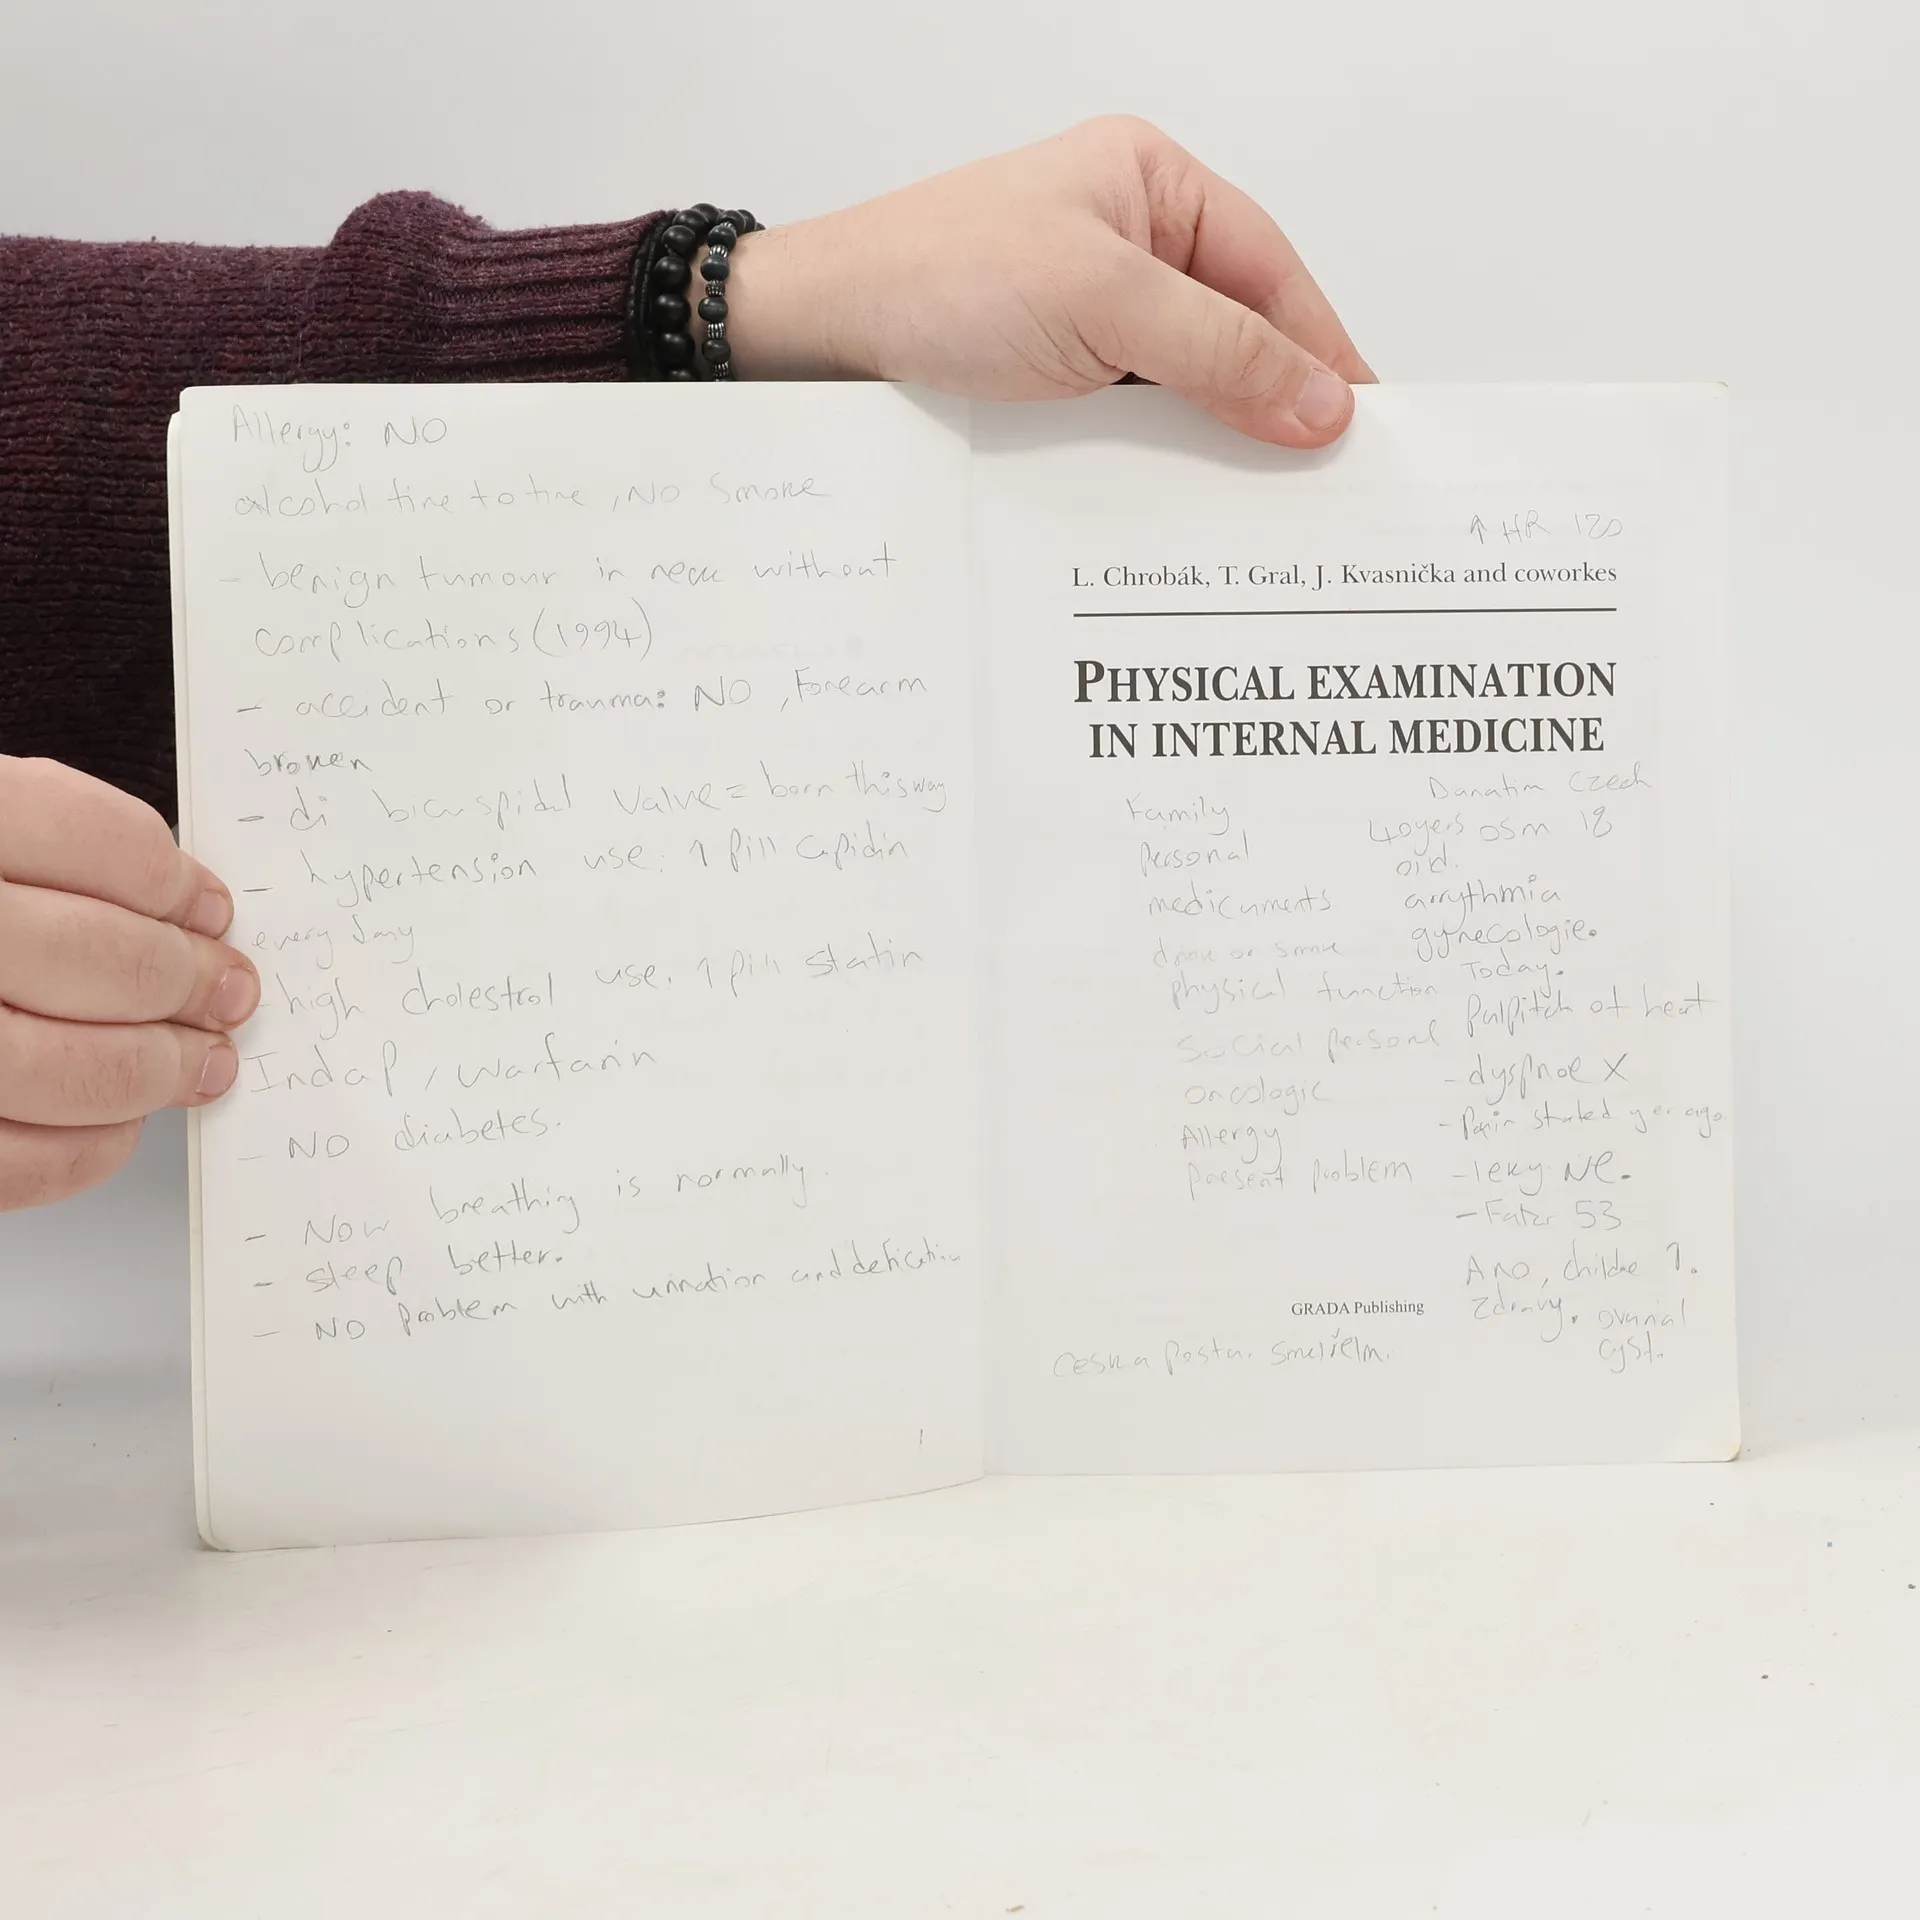 Allergy: NO
alcohol time to time, NO Smoke
- benign tumour in neck without
complications (1994)
- accident or trauma: NO, Forearm
broken
- di bicuspidal valve = born this way
- hypertension use: 1 pill capidin
every day
- high cholestrol use. 1 pill statin
Indap, warfarin
- NO diabetes.
- Now breathing is normally.
- sleep better.
- NO problem with urination and
1
↑ HR 120
L. Chrobák, T. Gral, J. Kvasnička and coworkes
PHYSICAL EXAMINATION
IN INTERNAL MEDICINE
Family
Personal
medicuments
drink or smoke
physical function
Social personal
oncologic
Allergy
Present problem
Czech
40yers osm 18
old.
arrythmia
gynecologie.
Today.
of heart
- dyspnoe X
- Pain started yer ago.
- leky Ne.
- 53
Ano, childe 1.
Zdravy. ovarial
cyst.
GRADA Publishing
Ceska Posta.